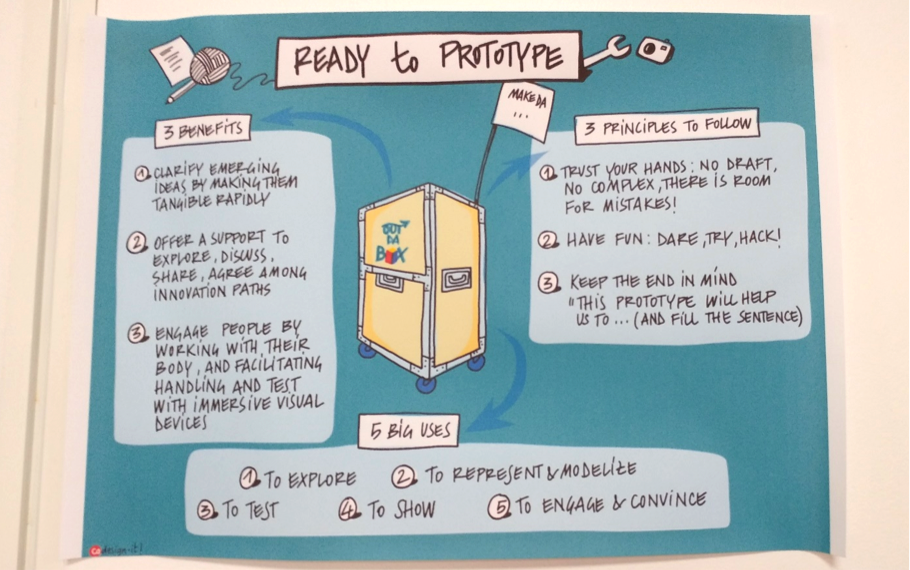 READY to PROTOTYPE
MAKE DA
...
3 BENEFITS
1 CLARIFY EMERGING
IDEAS BY MAKING THEM
TANGIBLE RAPIDLY
2 OFFER A SUPPORT TO
EXPLORE, DISCUSS,
SHARE, AGREE AMONG
INNOVATION PATHS
3 ENGAGE PEOPLE BY
WORKING WITH THEIR
BODY, AND FACILITATING
HANDLING AND TEST
WITH IMMERSIVE VISUAL
DEVICES
OUT
DA
BOX
3 PRINCIPLES TO FOLLOW
1 TRUST YOUR HANDS: NO DRAFT,
NO COMPLEX, THERE IS ROOM
FOR MISTAKES!
2 HAVE FUN: DARE, TRY, HACK!
3 KEEP THE END IN MIND
"THIS PROTOTYPE WILL HELP
US TO ... (AND FILL THE SENTENCE)
5 BIG USES
1 TO EXPLORE 2 TO REPRESENT & MODELIZE
3 TO TEST 4 TO SHOW 5 TO ENGAGE & CONVINCE
codesign-it!